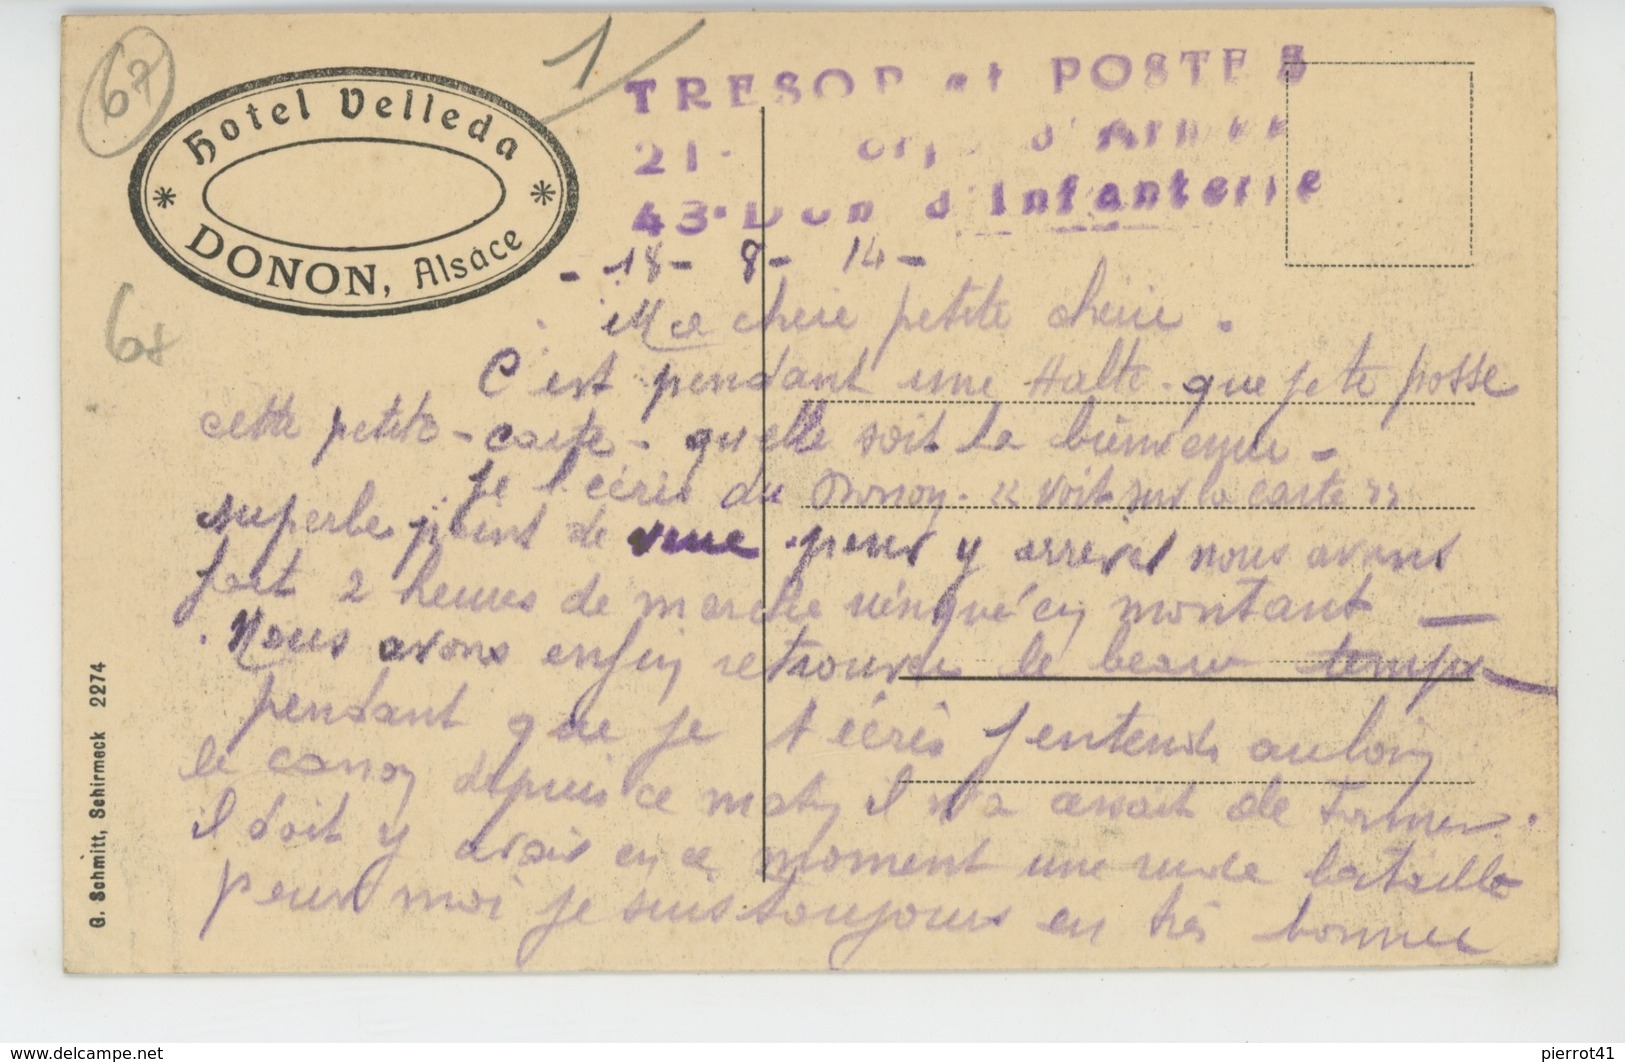 67
1
Hotel Velleda
DONON, Alsace
TRESOR et POSTES
21 Corps d'Armée
43 Don d'Infanterie
68
- 18 - 8 - 14 -
Ma chère petite chérie.
C'est pendant une Halte que je te posse
cette petite carte - qu'elle soit la bienvenue -
Je t'écris du Donon. « voit sur la carte »
superbe point de vue pour y arriver nous avons
fait 2 heures de marche en montant —
Nous avons enfin retrouver le beau temps
pendant que je t'écris j'entends au loin
le canon depuis ce matin il n'a cessait de tonner.
il doit y avoir en ce moment une rude bataille
pour moi je suis toujours en très bonnee
G. Schmitt, Schirmeck 2274
delcampe.net
pierrot41